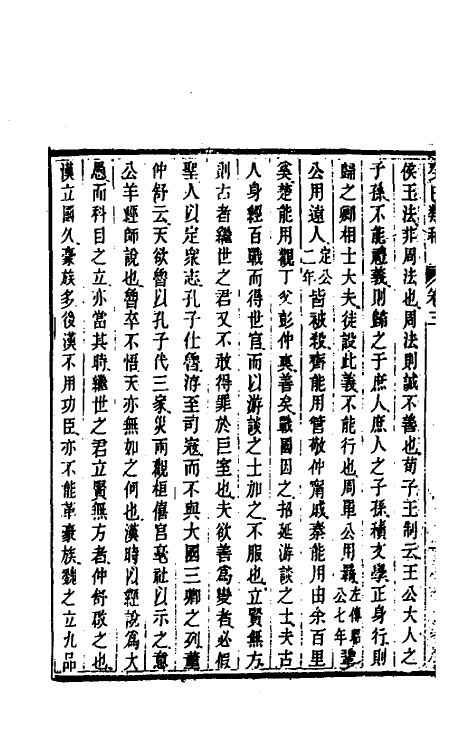 癸巳類稿 卷三
侯王法非周法也周法則誠不善也荀子王制云王公大人之
子孫不能禮義則歸之于庶人庶人之子孫積文學正身行則
歸之卿相士大夫徒設此義不能行也周單公用羈左傳昭公七年鞏
公用遠人定公二年皆被殺齊能用管敬仲甯戚秦能用由余百里
奚楚能用觀丁父彭仲爽善矣戰國因之招延游談之士夫古
人身經百戰而得世官而以游談之士加之不服也立賢無方
則古者繼世之君又不敢得罪於巨室也夫欲善爲變者必假
聖人以定衆志孔子仕魯游至司寇而不與大國三卿之列董
仲舒云天欲魯以孔子代三家災兩觀桓僖宮亳社以示之意
公羊經師說也魯卒不悟天亦無如之何也漢時以經說爲大
愚而科目之立亦當其時繼世之君立賢無方者仲舒啟之也
漢立國久豪族多後漢不用功臣亦不能革豪族魏之立九品